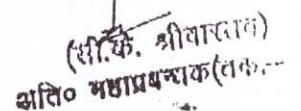 (सी.के. श्रीवास्तव)
अति० महाप्रबन्धक(तक.--